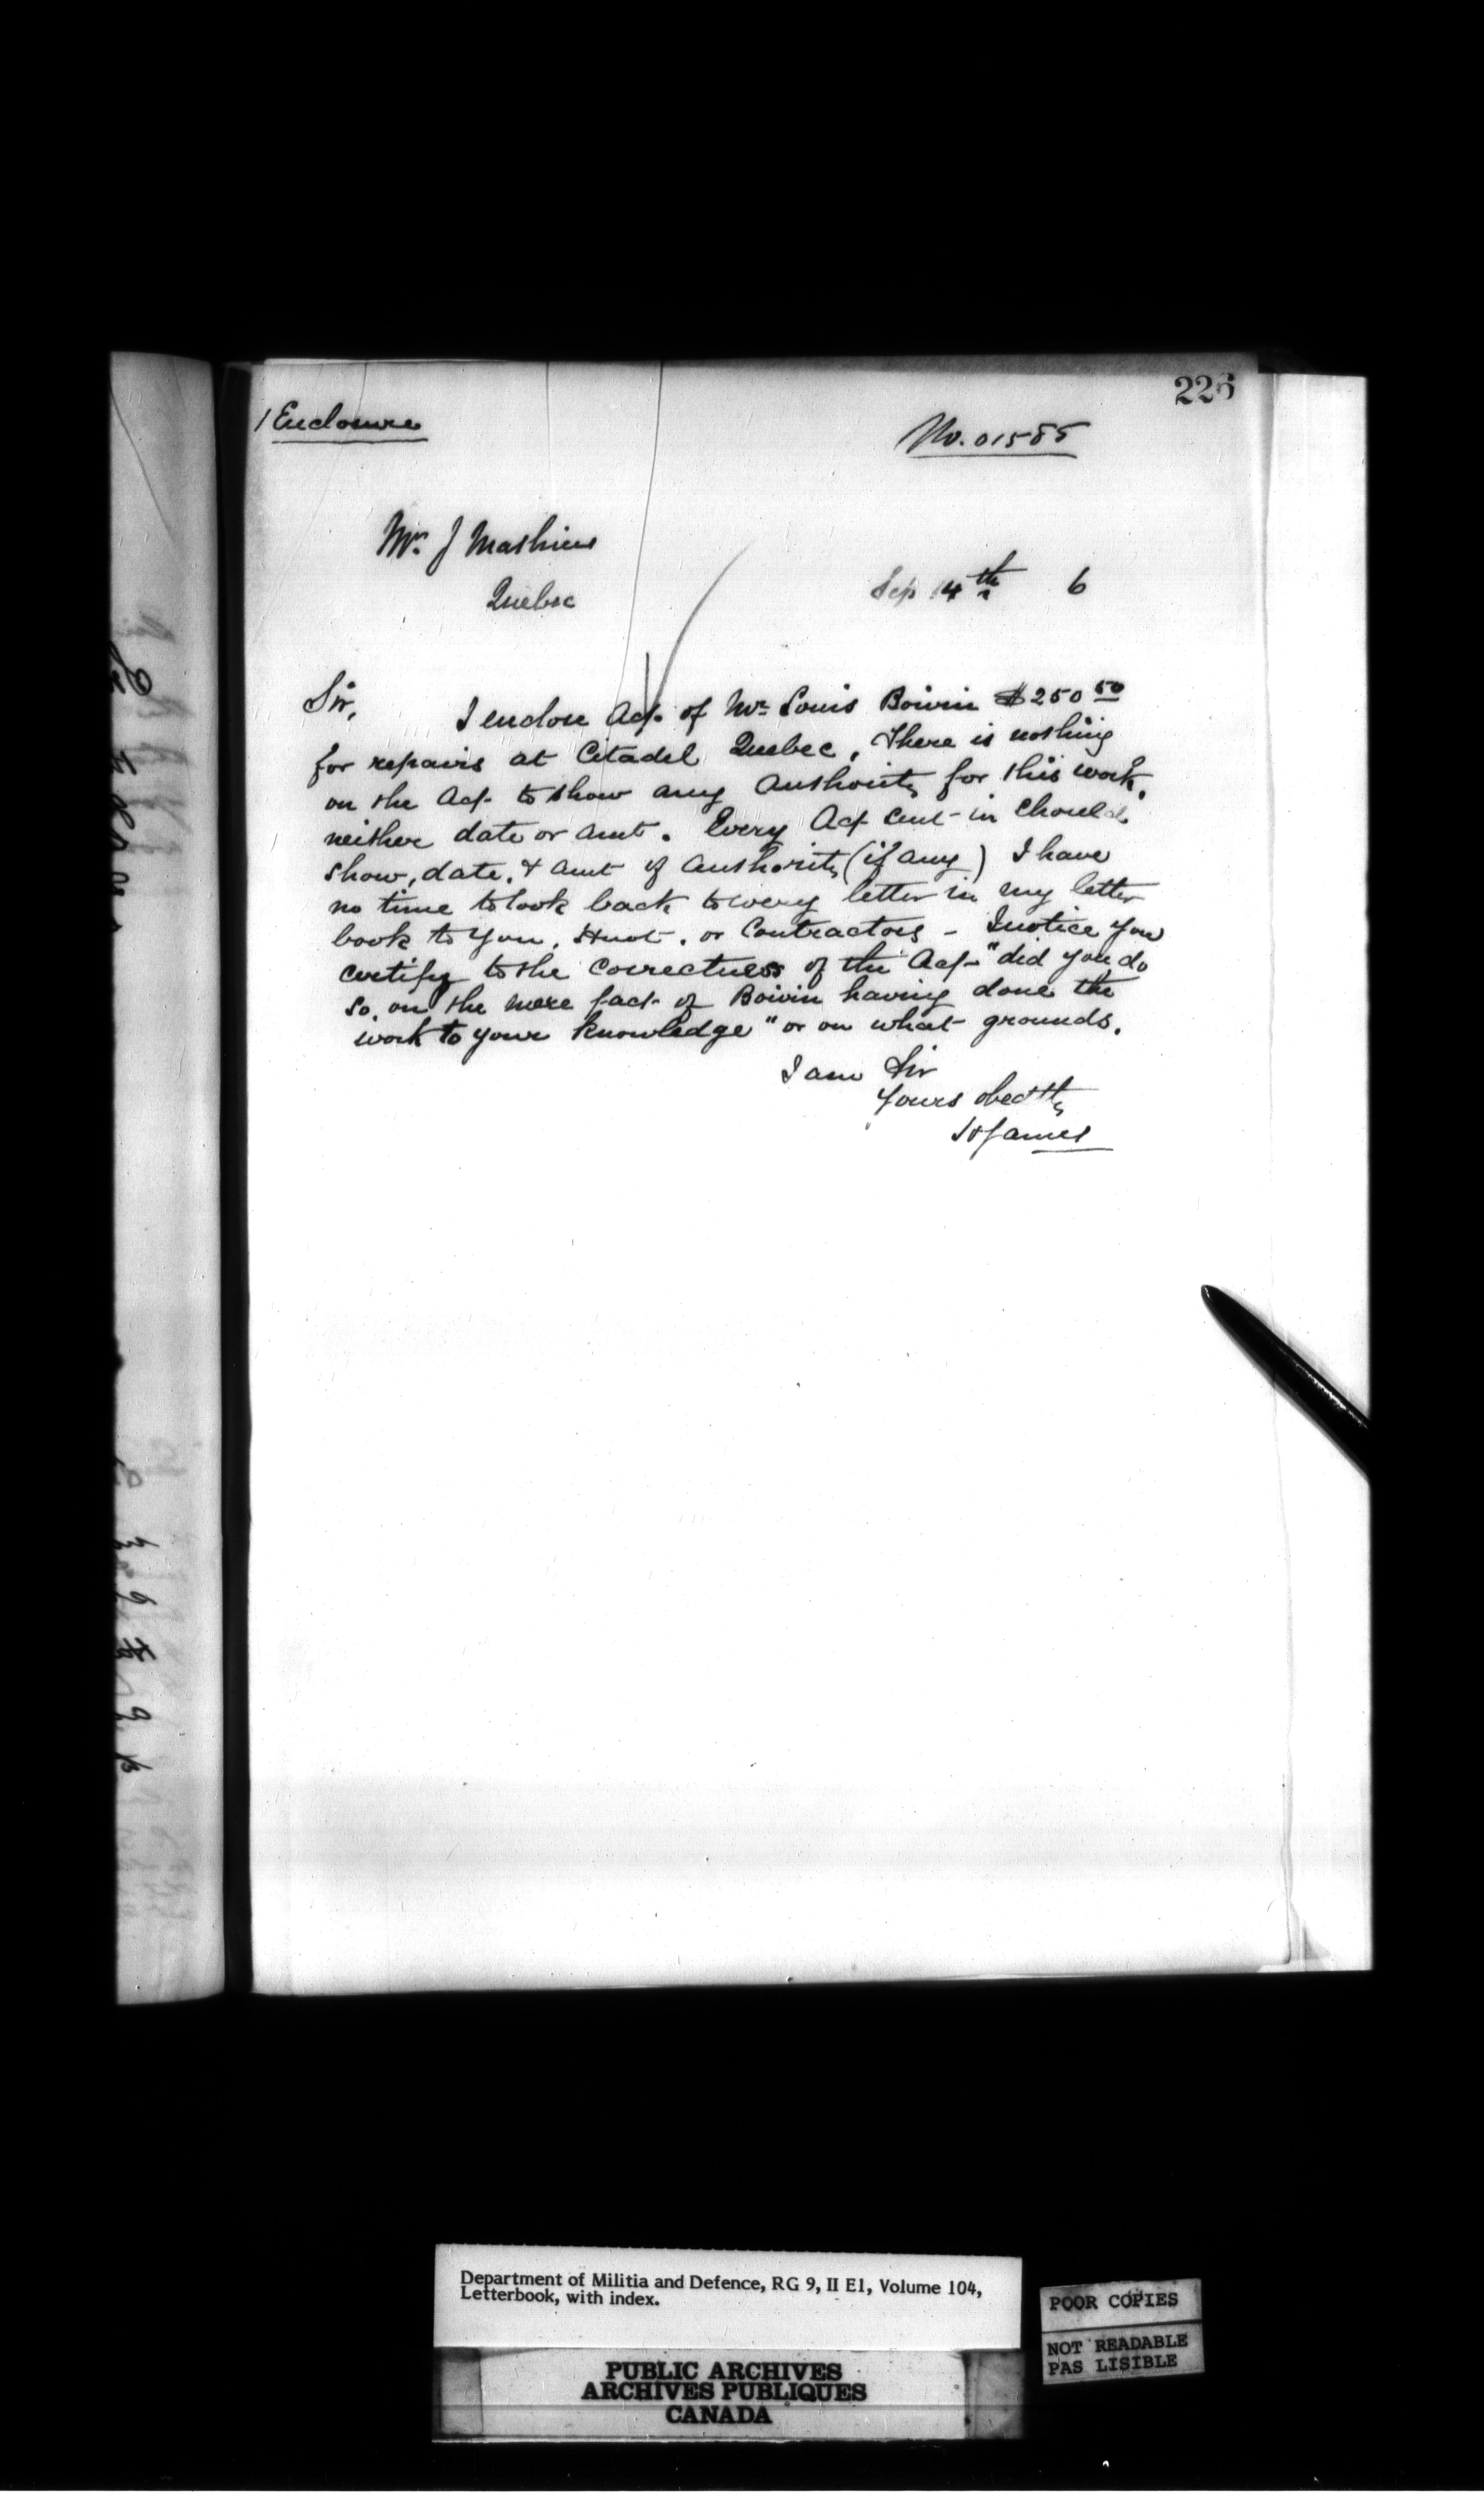 226
1 Enclosure
No. 01585
Mr. J Mathieu
Quebec
Sep 14th 6
Sir,
I enclose Act. of Mr Louis Boivin $250 50
for repairs at Citadel Quebec, There is nothing
on the Act. to show any Authority for this work,
neither date or amt. Every Act sent in should
show, date, & amt of authority (if any) I have
no time to look back to every letter in my letter
book to you, or Contractors - I notice you
certify to the correctness of the Act - "did you do
so, on the mere fact of Boivin having done the
work to your knowledge" or on what grounds.
I am Sir
Yours obedtly
James
Department of Militia and Defence, RG 9, II E1, Volume 104,
Letterbook, with index.
POOR COPIES
NOT READABLE
PAS LISIBLE
PUBLIC ARCHIVES
ARCHIVES PUBLIQUES
CANADA